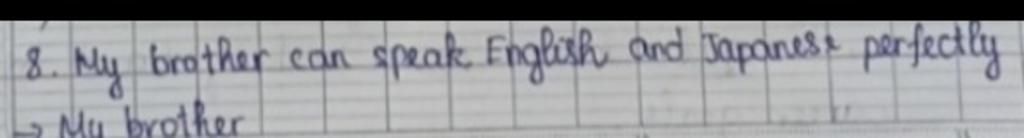 8. My brother can speak English and Japanese perfectly
→ My brother